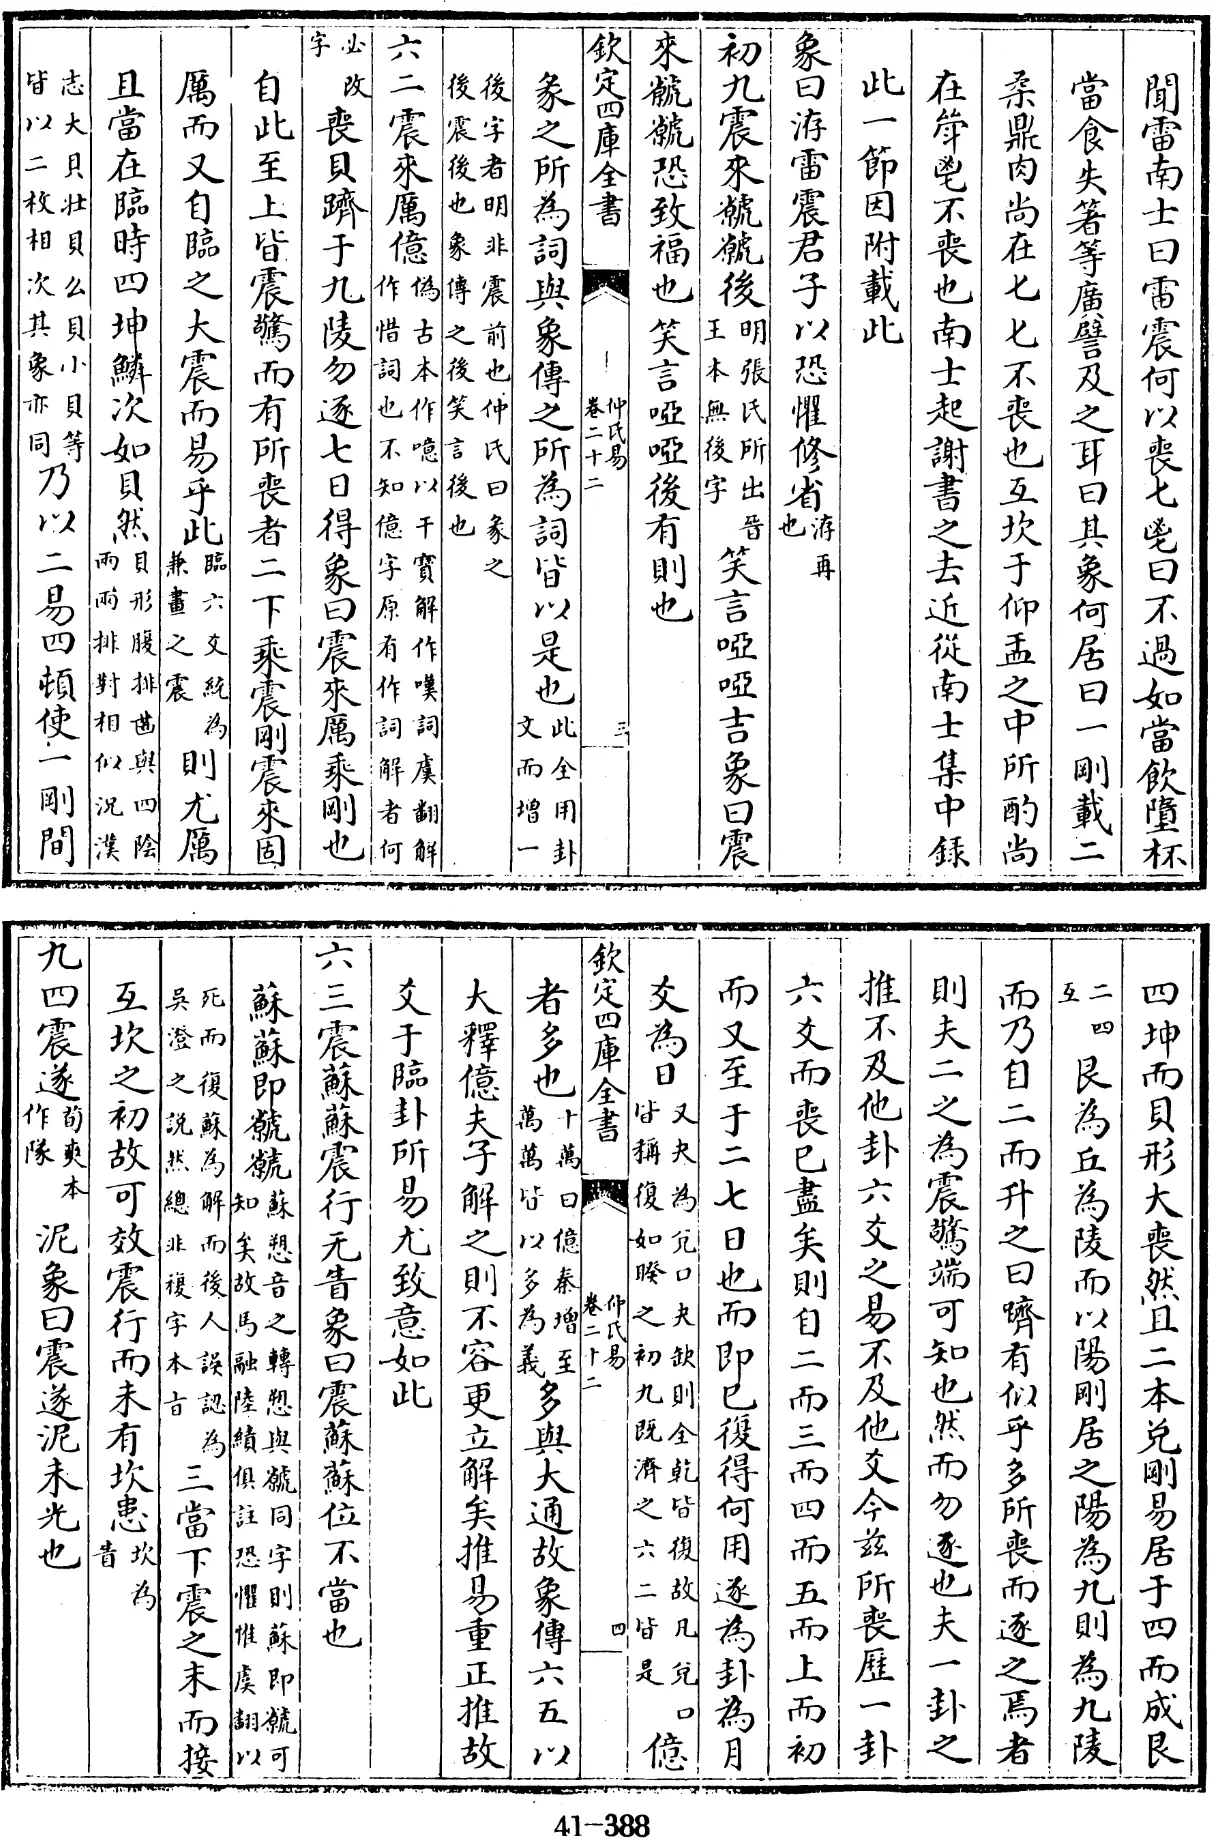 聞雷南士曰雷震何以喪匕鬯曰不過如當飲墮杯
當食失箸等廣譬及之耳曰其象何居曰一剛載二
柔鼎肉尚在匕匕不喪也互坎于仰盂之中所酌尚
在斝鬯不喪也南士起謝書之去近從南士集中録
此一節因附載此
象曰洊雷震君子以恐懼修省洊再也
初九震來虩虩後明張氏所出晉王本無後字笑言啞啞吉象曰震
來虩虩恐致福也笑言啞啞後有則也
欽定四庫全書 仲氏易 卷二十二 三
彖之所為詞與象傳之所為詞皆以是也此全用卦文而增一
後字者明非震前也仲氏曰彖之後震後也象傳之後笑言後也
六二震來厲億偽古本作噫以干寳解作嘆詞虞翻解作惜詞也不知億字原有作詞解者何
必改字喪貝躋于九陵勿逐七日得象曰震來厲乘剛也
自此至上皆震驚而有所喪者二下乘震剛震來固
厲而又自臨之大震而易乎此臨六爻統為兼畫之震則尤厲
且當在臨時四坤鱗次如貝然貝形腹排齒與四陰兩兩排對相似況漢
志大貝壯貝么貝小貝等皆以二枚相次其象亦同乃以二易四頓使一剛間
四坤而貝形大喪然且二本兌剛易居于四而成艮
二四互艮為丘為陵而以陽剛居之陽為九則為九陵
而乃自二而升之曰躋有似乎多所喪而逐之焉者
則夫二之為震驚端可知也然而勿逐也夫一卦之
推不及他卦六爻之易不及他爻今兹所喪歷一卦
六爻而喪已盡矣則自二而三而四而五而上而初
而又至于二七日也而即已復得何用逐為卦為月
爻為日又夬為兌口夬缺則全乾皆復故凡兌口皆稱復如睽之初九既濟之六二皆是億
欽定四庫全書 仲氏易 卷二十二 四
者多也十萬曰億秦增至萬萬皆以多為義多與大通故象傳六五以
大釋億夫子解之則不容更立解矣推易重正推故
爻于臨卦所易尤致意如此
六三震蘇蘇震行无眚象曰震蘇蘇位不當也
蘇蘇即虩虩蘇愬音之轉愬與虩同字則蘇即虩可知矣故馬融陸績俱註恐懼惟虞翻以
死而復蘇為解而後人誤認為吳澄之說然總非複字本旨三當下震之末而接
互坎之初故可效震行而未有坎患坎為眚
九四震遂荀爽本作隊泥象曰震遂泥未光也
41-388